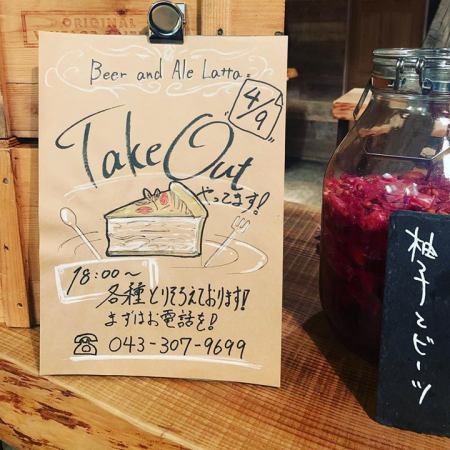 ORIGINAL
Beer and Ale Latta.
4/9
Take Out
やってます!
18:00〜
各種とりそろえております!
まずはお電話を!
☎ 043-307-9699
柚子とビーツ